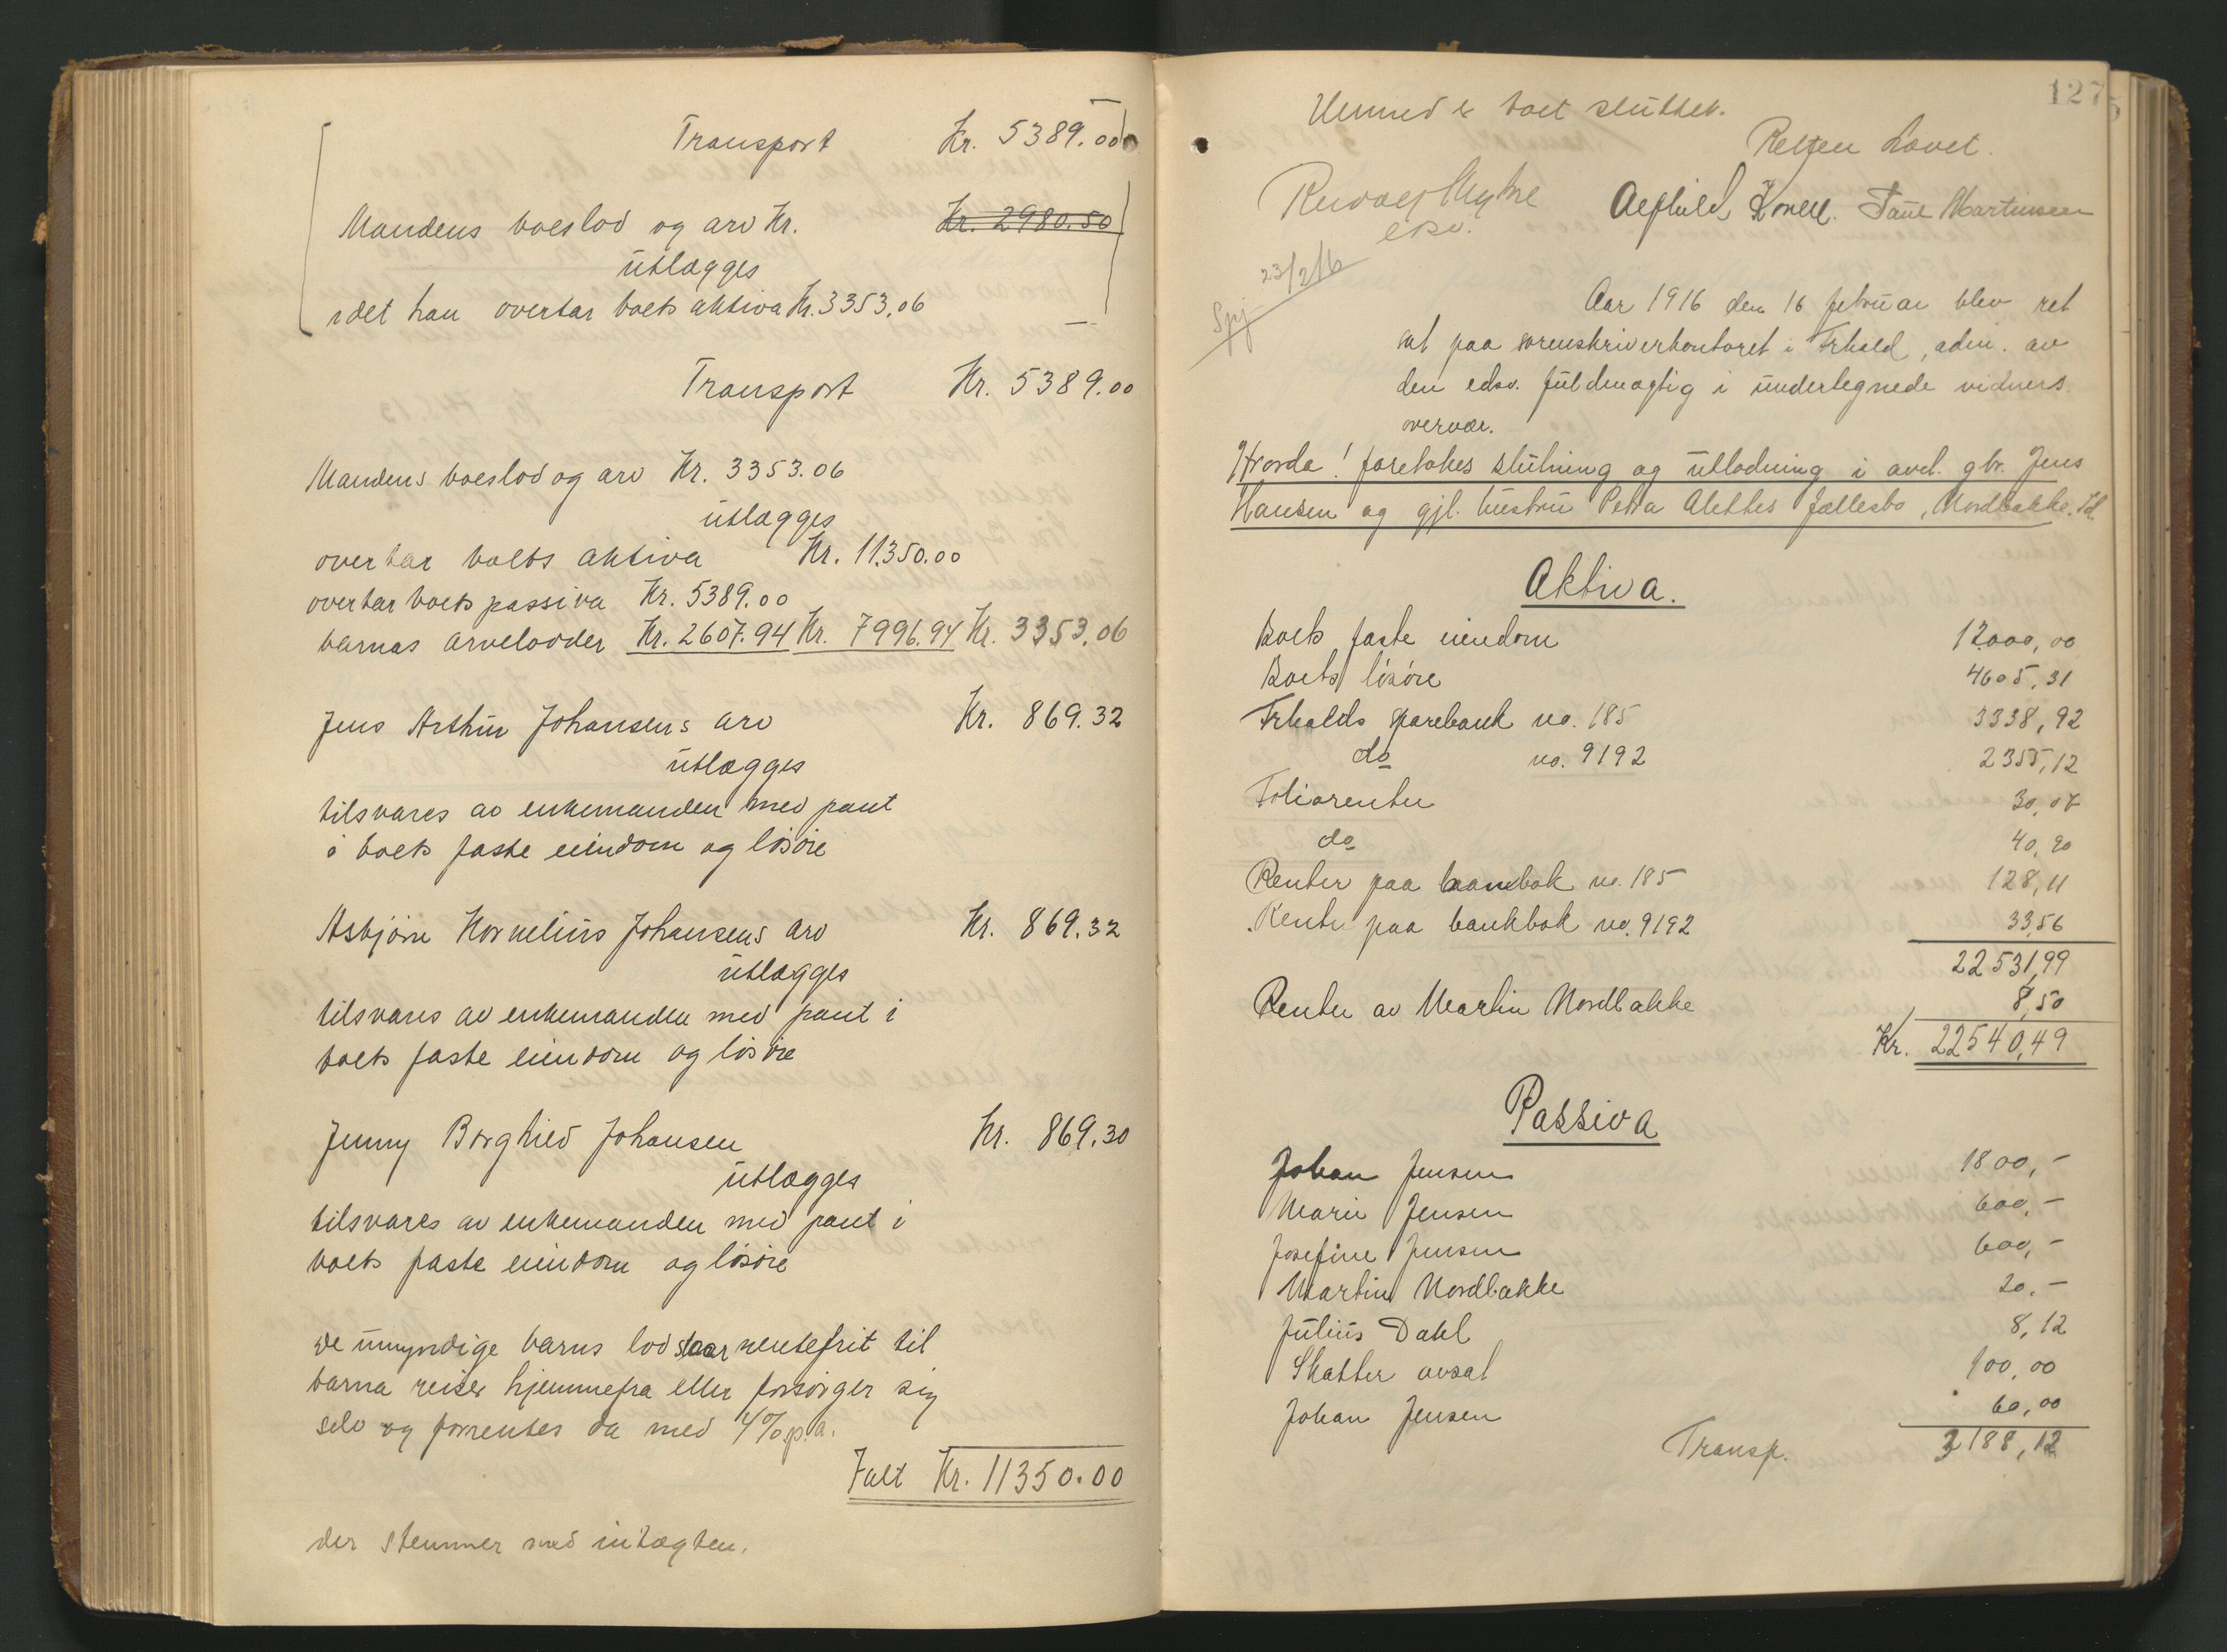 Transport Kr. 5389.00
Mandens boeslod og arv Kr. Kr. 2980.50
utlægges
idet han overtar boets aktiva Kr. 3353.06
Transport Kr. 5389.00
Mandens boeslod og arv Kr. 3353.06
utlægges
overtar boets aktiva Kr. 11.350.00
overtar boets passiva Kr. 5389.00
barnas arvelodder Kr. 2607.94 Kr. 7996.94 Kr. 3353.06
Jens Arthur Johansens arv Kr. 869.32
utlægges
tilsvares av enkemanden med pant
i boets faste eiendom og løsøre
Asbjørn Kornelius Johansens arv Kr. 869.32
utlægges
tilsvares av enkemanden med pant i
boets faste eiendom og løsøre
Jenny Borghild Johansen Kr. 869.30
utlægges
tilsvares av enkemanden med pant i
boets faste eiendom og løsøre
De umyndige barns lod staar rentefrit til
barna reiser hjemmefra eller forsørger sig
selv og forrentes da med 4% p.a.
Ialt Kr. 11350.00
der stemmer med indtægten.
127
Hermed er boet sluttet.
Retten hævet.
edsv.
Paul Martinsen
23/2 16
Aar 1916 den 16 februar blev ret
sat paa sorenskriverkontoret i Frhald, adm. av
den edsv. fuldmægtig i undertegnede vidners
overvær.
Hvorda! foretokes slutning og utlodning i avd. gbr. Jens
Hansen og gjl. hustru Petra Alettes fællesbo, Nordbakke, Id
Aktiva.
Boets faste eiendom 12.000,00
Boets løsøre 4605,31
Frhalds sparebank no. 185 3338,92
do no. 9192 2355,12
Foliorenter 30,07
do 40,90
Renter paa bankbok no. 185 128,11
Rente paa bankbok no. 9192 33,56
22531,99
Renter av Martin Nordbakke 8,50
Kr. 22540,49
Passiva
Johan Jensen 1800,-
Marie Jensen 600,-
Josefine Jensen 600,-
Martin Nordbakke 20.-
Julius Dahl 8,12
Skatter avsat 100,00
Johan Jensen 60,00
Transp. 3188,12